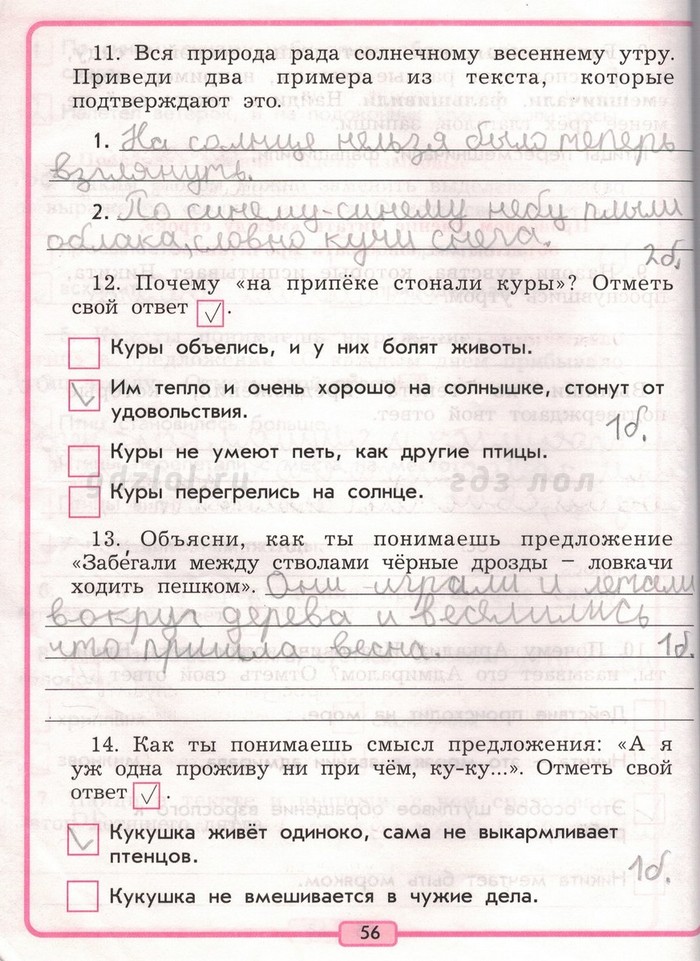 11. Вся природа рада солнечному весеннему утру.
Приведи два примера из текста, которые
подтверждают это.
1. На солнце нельзя было теперь
взглянуть.
2. По синему-синему небу плыли
облака, словно кучи снега.
2б.
12. Почему «на припёке стонали куры»? Отметь
свой ответ ✓.
Куры объелись, и у них болят животы.
Им тепло и очень хорошо на солнышке, стонут от
удовольствия.
1б.
Куры не умеют петь, как другие птицы.
gdzlol.ru гдз лол
Куры перегрелись на солнце.
13. Объясни, как ты понимаешь предложение
«Забегали между стволами чёрные дрозды – ловкачи
ходить пешком». Они играли и летали
вокруг дерева и веселились
что пришла весна. 1б.
14. Как ты понимаешь смысл предложения: «А я
уж одна проживу ни при чём, ку-ку...». Отметь свой
ответ ✓.
Кукушка живёт одиноко, сама не выкармливает
птенцов.
1б.
Кукушка не вмешивается в чужие дела.
56